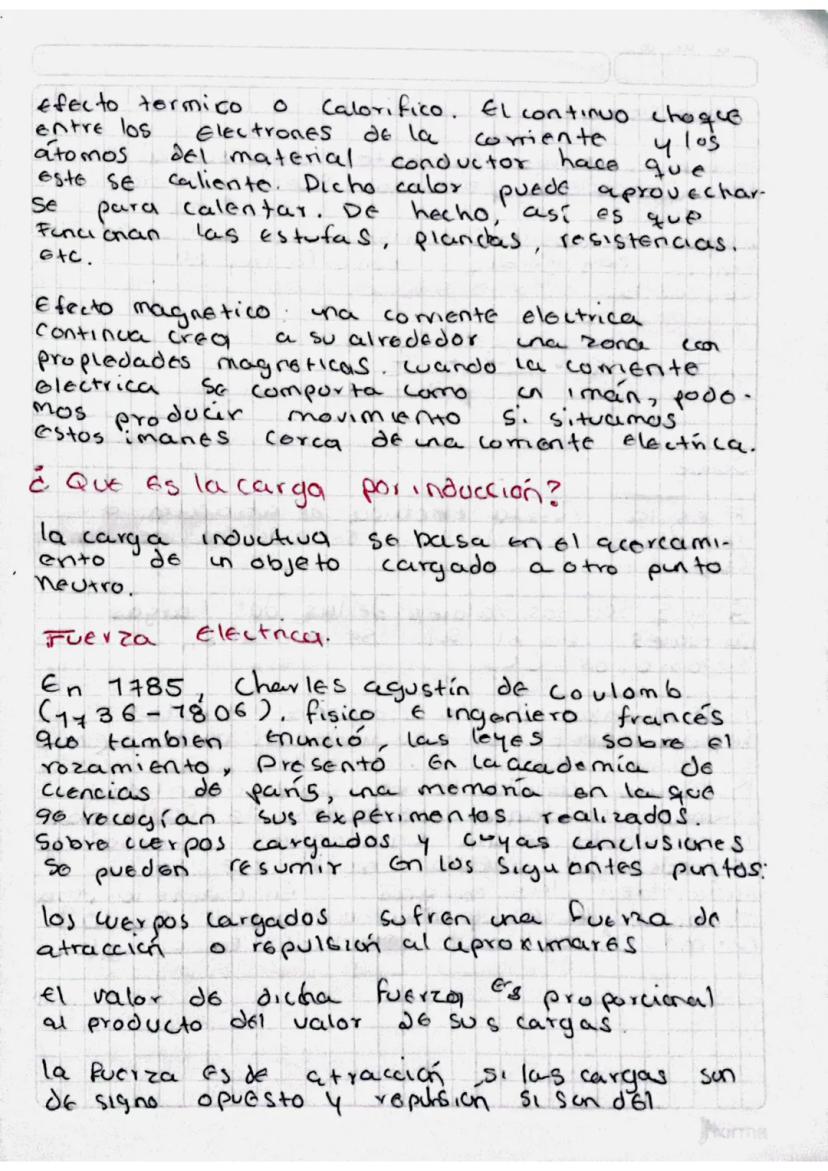 Efecto termico o calorifico. El continuo choque
entre los electrones de la corriente y los
átomos del material conductor hace que
este se caliente. Dicho calor puede aprovechar-
se para calentar. De hecho, así es que
Funcionan las estufas, planchas, resistencias.
etc.
Efecto magnetico: una corriente electrica
continua crea a su alrededor una zona con
propiedades magneticas. cuando la corriente
electrica se comporta como un imán, pode-
mos producir movimiento si situamos
estos imanes cerca de una corriente electrica.
¿ Que es la carga por inducción?
la carga inductiva se basa en el acercami-
ento de un objeto cargado a otro punto
neutro.
Fuerza Electrica.
En 1785, Charles agustín de coulomb
(1736-1806). fisico e ingeniero francés
que tambien enunció, las leyes sobre el
rozamiento, presentó en la academía de
ciencias de parís, una memoria en la que
se recogían sus expérimentos realizados.
Sobre cuerpos cargados y cuyas conclusiones
se pueden resumir en los siguientes puntos:
los cuerpos cargados sufren una fuerza de
atracción o repulsión al aproximares
el valor de dicha fuerza es proporcional
al producto del valor de sus cargas.
la fuerza es de atracción si las cargas son
de signo opuesto y repulsión si son del
Norma